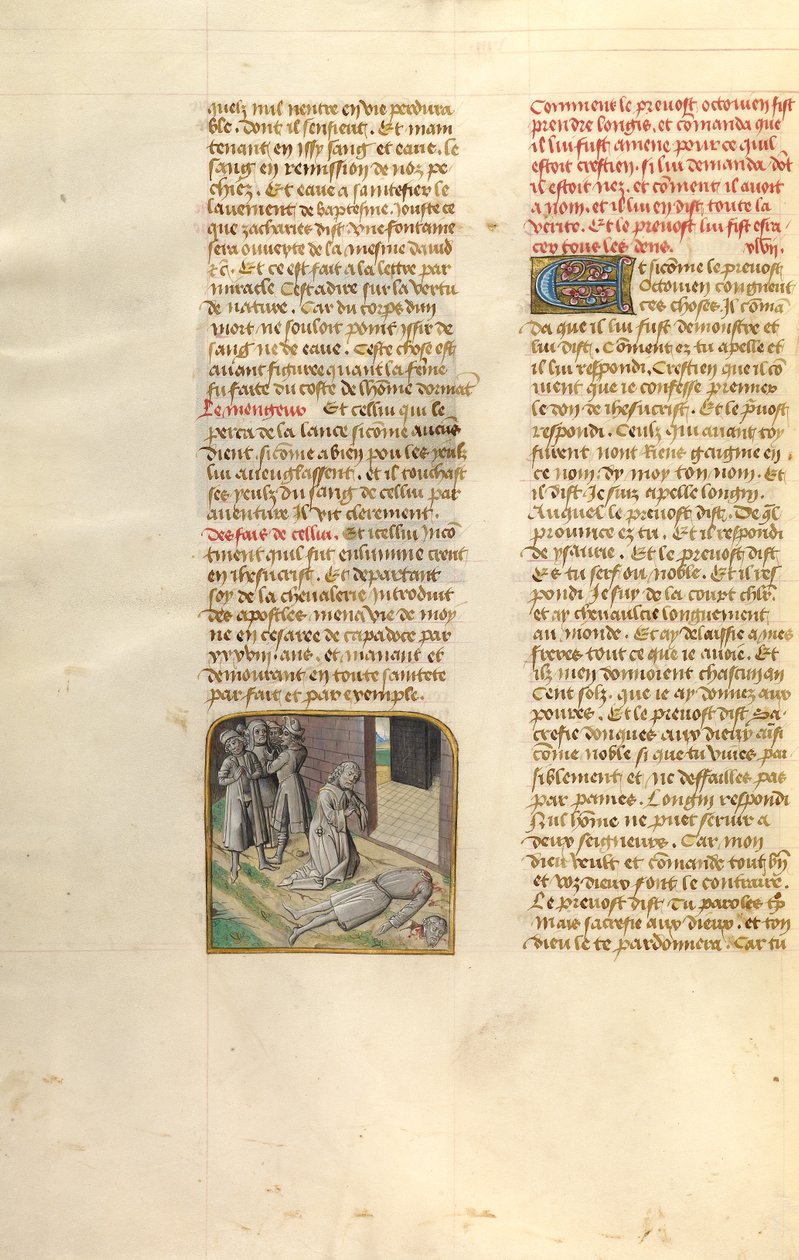 quelz nul nentre en vie perdura
ble. dont il senfient. Et main
tenant en issy sang et eaue. le
sang en remission de noz pe
chiez. Et eaue a saintefier le
lauement de baptesme. Jouste ce
que zacharies dist vne fontaine
sera ouuerte de la mesme dauid
⁊c̄. Et ce est fait a la lettre par
miracle Cestadire sur la vertu
de nature. Car du corps dun
mort ne souloit point yssir de
sang ne de eaue. Ceste chose est
auant figuree quant la fēme
fu faite du coste de lhōme dormāt
Le mengeur Et cellui qui le
perca de la lance sicōme aucūs
dient. sicōme a bien pou les yeulz
lui aueuglassent. et il touchast
ses yeulz du sang de cellui par
auenture Il vit clerement.
Des fais de cellui. Et icellui Incō
tinent quil fut enlumine creut
en ihesucrist. Et departant
soy de la cheualerie introduit
des apostles. mena vie de moy
ne en cesaree de capadoce par
xxxviii. ans. et manant et
demourant en toute saintete
par fait et par exemple.
Comment le preuost octouien fist
prendre longis. et cōmanda que
il lui fust amene pour ce quil
estoit crestien. si lui demanda dōt
il estoit nez. et cōment il auoit
a nom. et il lui en dist toute la
verite. Et le preuost lui fist esra
cer tous les dens. xlvii.
Et sicōme le preuost
Octouien congneut
ces choses. Il cōmā
da que il lui fust demonstre et
lui dist. Cōment ez tu apelle et
il lui respondi. Crestien que il cō
uient que ie confesse premier
le don de ihesucrist. Et le p̄uost
respondi. Ceulz qui auant toy
furent nont Riens gaigne en
ce nom. dy moy ton nom. Et
il dist Je suiz apelle longin.
Auquel le preuost dist. De q̄l
prouince ez tu. Et il respondi
de ysaurie. Et le preuost dist
Es tu serf ou noble. Et il res
pondi Je suy de la court chlr̄.
et ay cheuaulcie longuement
au monde. Et ay delaissie a mes
freres tout ce que ie auoie. Et
ilz men donnoient chascun an
Cent solz. que ie ay donnez aux
poures. Et le preuost dist Sa
crefie donques aux dieux ausi
cōme noble si que tu viues pai
siblement et ne deffailles pas
par paines. Longin respondi
Nul hōme ne puet seruir a
deux seigneurs. Car mon
dieu veult et cōmande tout bn̄
et voz dieux font le contraire.
Le preuost dist Tu paroles tp̄
mais sacrefie aux dieux. et ton
dieu le te pardonnera. Car tu